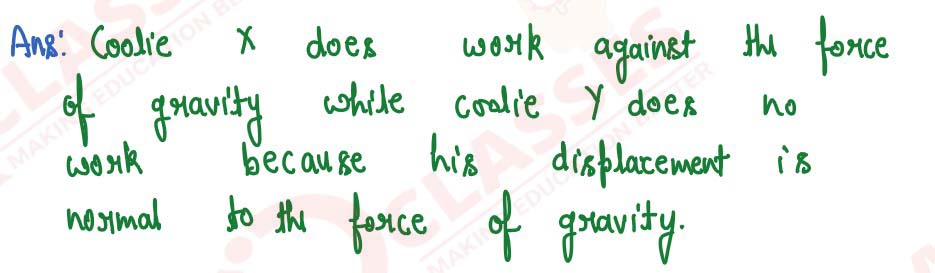 Ans: Coolie X does work against the force
of gravity while coolie Y does no
work because his displacement is
normal to the force of gravity.
CLASSES
MAKING EDUCATION BETTER